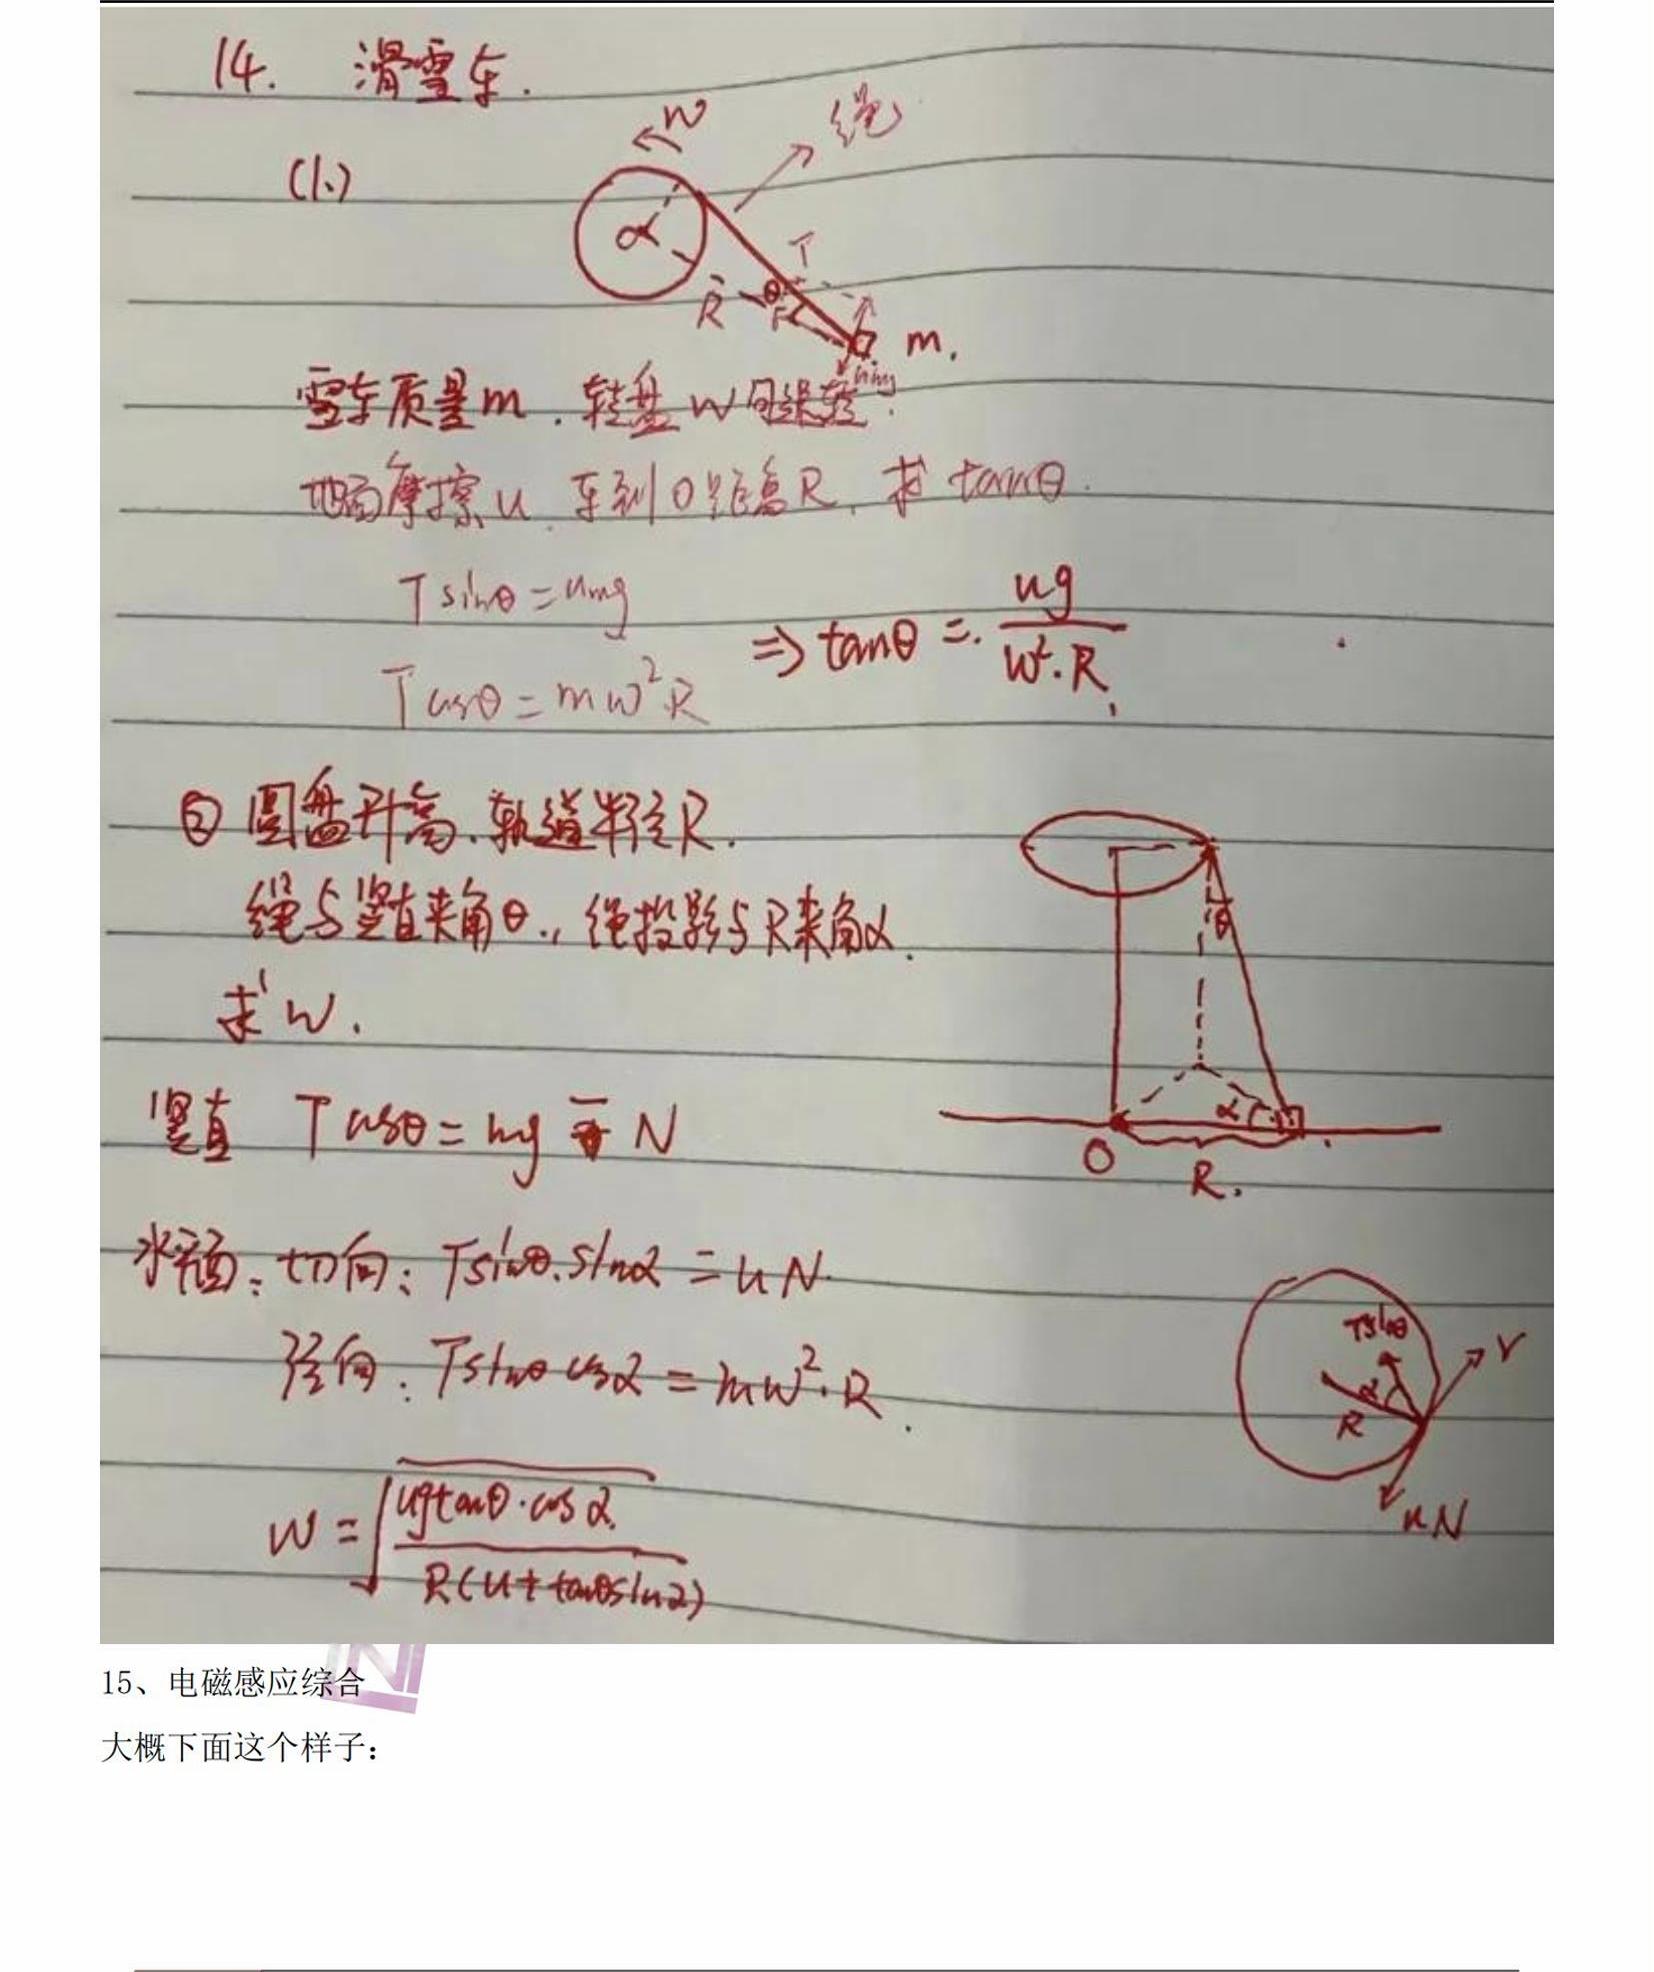 14. 滑雪车.
w
绳
(1.)
α
T
R
θ
m.
umg
雪车质量m.转盘w匀速转.
地面摩擦u.车到O距离R.求tanθ.
Tsinθ=umg
⇒tanθ=ug/w²·R
Tcosθ=mw²R
② 圆盘升高.轨道半径R.
绳与竖直夹角θ.,绳投影与R夹角α.
θ
求w.
竖直 Tcosθ=mg-N
α
O
R.
水平面:切向:Tsinθ.sinα=uN.
径向:Tsinθcosα=mw²·R.
Tsinθ
v
α
R
uN
w=√ugtanθ·cosα/R(u+tanθsinα)
15、电磁感应综合
大概下面这个样子: